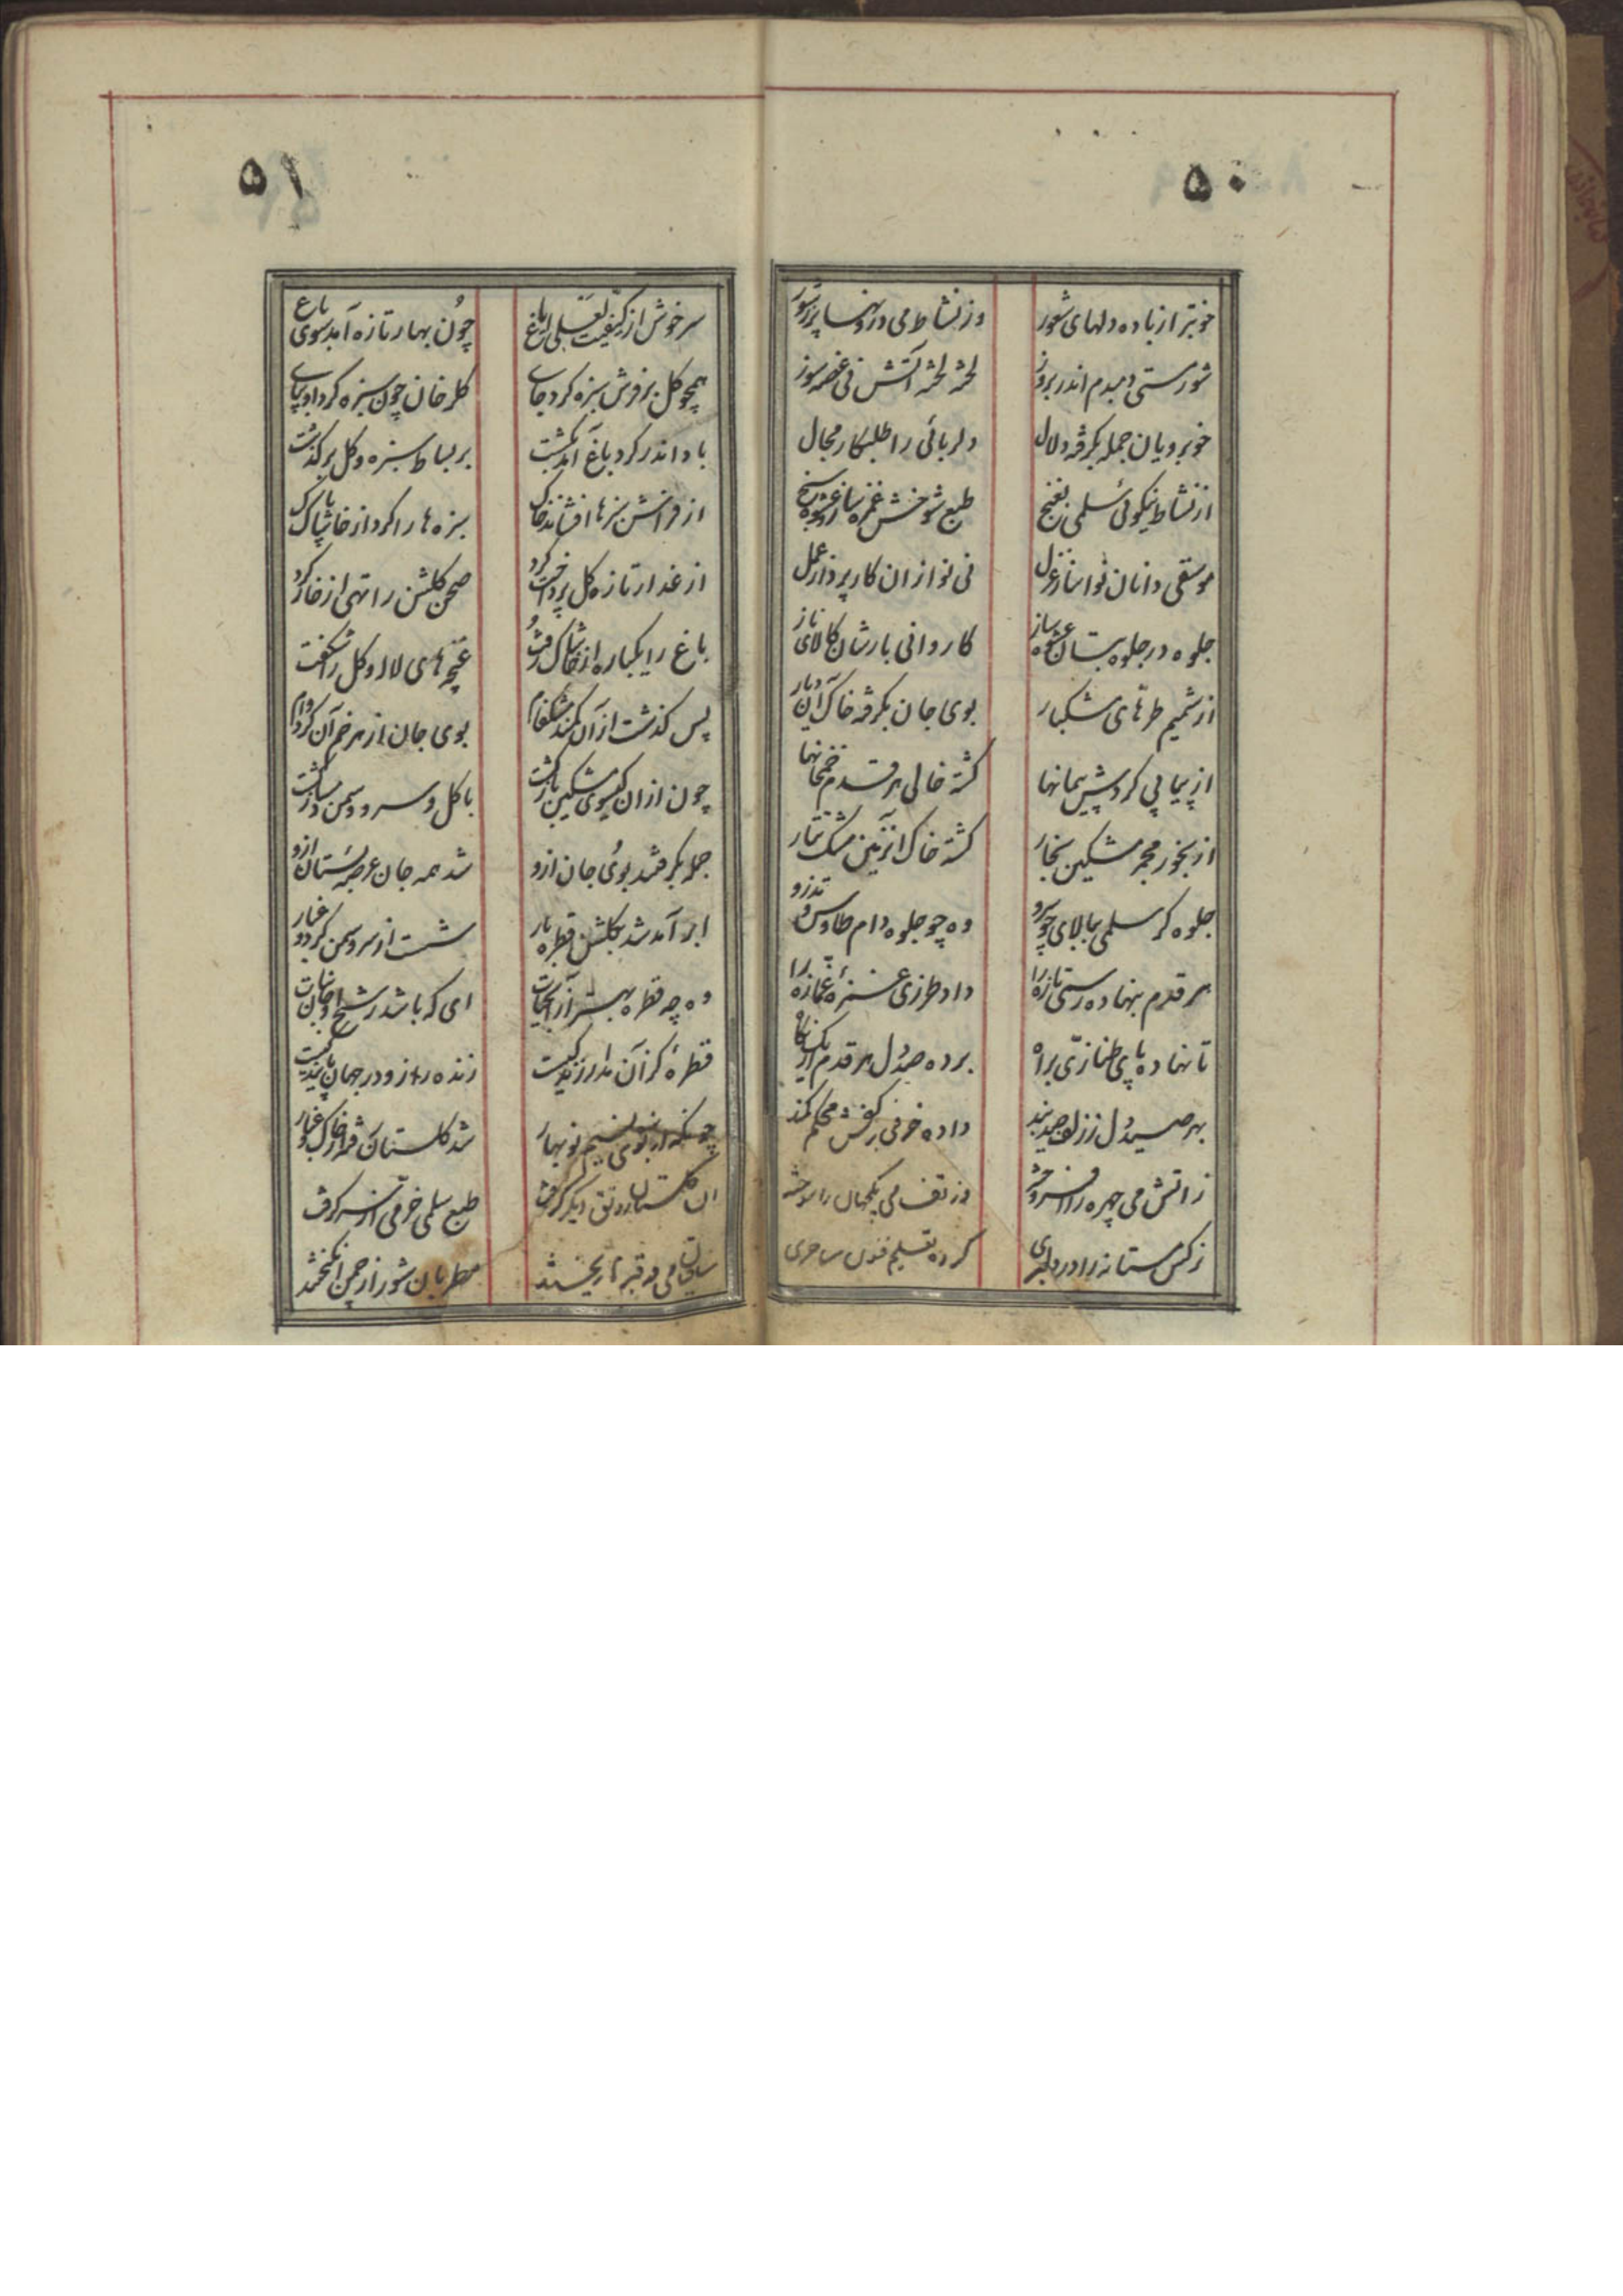 ۵۰
خوبتر از باده دلهای شور
وز نشاط می درونها پر ز سور
شور مستی دمبدم اندر بروز
لخته لخته آتش نی غصه سوز
خوبرویان جمله بگرفه دلال
دلربائی را طلبکار مجال
از نشاط نیکوئی سلمی بغنج
طبع شوخش غمزه ساز عشوه سنج
موسقی دانان نوا ساز غزل
نی نوازان کار پرداز عمل
جلوه در جلوه بتان عشوه ساز
کاروانی بارشان کالای ناز
از شمیم طرهای مشکبار
بوی جان بگرفه خاک آن دیار
از پیاپی گردش پیمانها
گشته خالی هر قدم خمخانها
از بخور مجمر مشکین بخار
گشته خاک انزمین مشک تتار
جلوه گر سلمی ببالای چو سرو
وه چو جلوه دام طاوس و تذرو
هر قدم بنهاده رستی تازه را
داد طرزی عشوهٔ غمازه را
تا نهاده پای طنازی براه
برده صد دل هر قدم از یک نگاه
بهر صید دل ز زلف صید بند
داده خونی بر کفش محکم کمند
ز اتش می چهره را افروخته
وز تف می یکجهان را سوخته
نرگس مستانه را در دلبری
کرده تعلیم فنون ساحری
۵۱
سرخوش از کیفیت لعلی ایاغ
چون بهار تازه آمد سوی باغ
همچو گل بر فرش سبزه کرد جای
گلرخان چون سبزه گرد او بپای
باد اندر گرد باغ آمد بگشت
بر بساط سبزه و گل برگذشت
از فراش سبزها افشاند خاک
سبزه ها را کرد از خاشاک پاک
از غدار تازه گل پرداخت گرد
صحن گلشن را تهی از خار کرد
باغ را یکباره از خاشاک رفت
غنچه های لاله و گل را شگفت
پس گذشت از آن کمند مشکفام
بوی جان از هر خم آن کرد وام
چون از ان گیسوی مشکین بازگشت
با گل و سرو و سمن دمساز گشت
جمله بگرفتند بوی جان ازو
شد همه جان عرصه بستان ازو
ابر آمد شد بگلشن قطره بار
شست از سرو و سمن گرد و غبار
وه چه قطره بهتر از آبحیات
ای که باشد رشح او جان نبات
قطرهٔ کز آن مدار زندگیست
زنده را زو در جهان پایندگیست
چونکه از بوی نسیم نوبهار
شد گلستان رفته از خاک و غبار
ان گلستان رونق دیگر گرفت
طبع سلمی خرمی از سر گرفت
ساقیان می در قدح ها ریختند
مطربان شور از چمن انگیختند